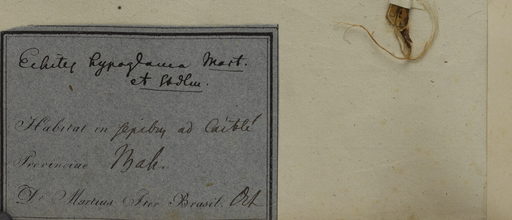 Echites hypoglauca Mart.
et Stdlm.
Habitat in sepibus ad Caitité
Provinciae Bah.
Dr Martius Iter Brasil. Oct